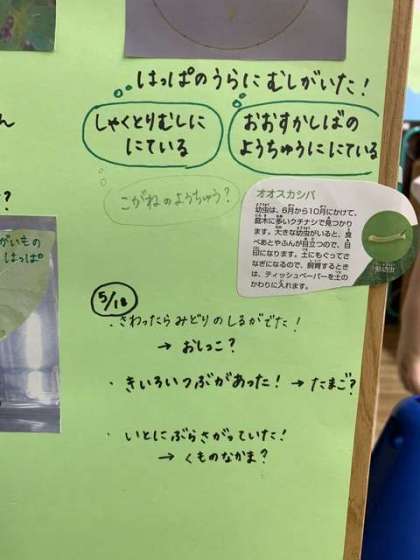 はっぱのうらに むしがいた！
しゃくとりむしに
にている
おおすかしばの
ようちゅうににている
こがねのようちゅう？
ん
？
がいもの
はっぱ
オオスカシバ
幼虫は、6月から10月にかけて、
庭木に多いクチナシで見つかり
ます。大きな幼虫がいると、食
べあとやふんが目立つので、目
印になります。土にもぐってさ
なぎになるので、飼育するとき
は、ティッシュペーパーを土の
かわりに入れます。
5/18
・さわったらみどりのしるがでた！
→ おしっこ？
・きいろいつぶがあった！ → たまご？
・いとにぶらさがっていた！
→ くものなかま？